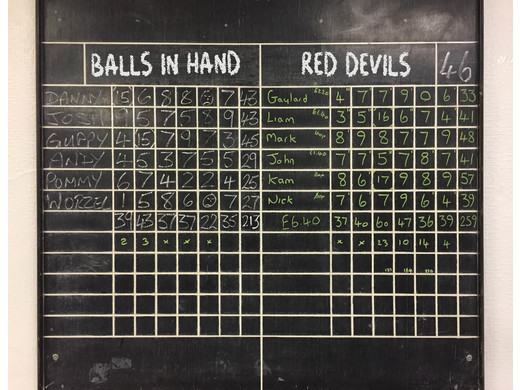 BALLS IN HAND RED DEVILS 46
DANNY 15 6 8 8 7 Gaylard 4 7 7 9 0 6 33
JOSH 9 5 7 5 8 9 43 Liam 3 5 16 6 7 4 41
GUPPY 4 15 7 9 7 3 45 Mark 8 9 8 7 7 9 48
ANDY 4 5 3 7 5 5 29 John £1.40 7 7 5 7 8 7 41
POMMY 6 7 4 2 2 4 25 Kam 8 6 17 9 8 9 57
WORZEL 1 5 8 6 7 27 Nick 7 6 7 9 6 4 39
39 43 37 37 22 35 213 £6.40 37 40 60 47 36 39 259
2 3 x x x x x 23 10 14 4